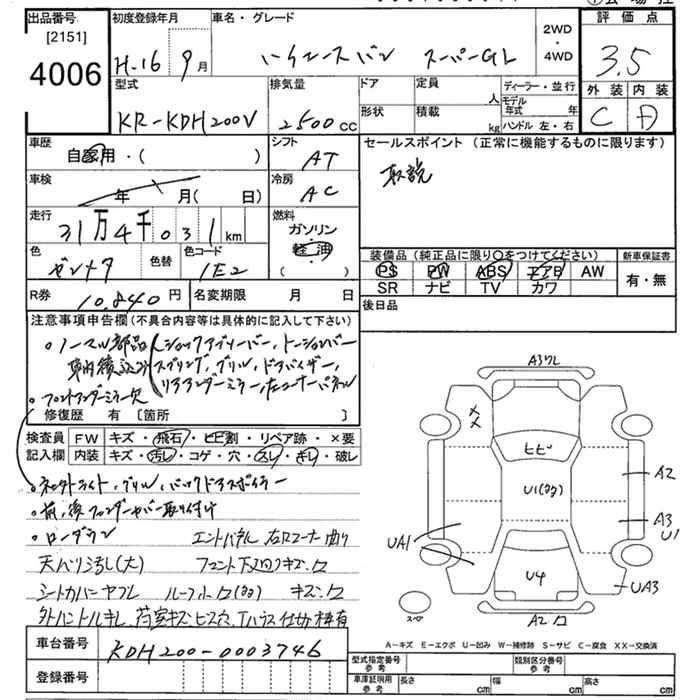 出品番号 初度登録年月 車名・グレード 2WD・4WD 評価点
[2151]
4006 H-16年 9月 ハイエースバン スーパーGL 3.5
外装 内装
C D
型式 排気量 ドア 定員 人 ディーラー・並行
モデル年式 年
KR-KDH200V 2500cc 形状 積載 kg ハンドル 左・右
車歴 シフト セールスポイント (正常に機能するものに限ります)
自家用・( ) AT 取説
車検 冷房
年 月(日) AC
走行 燃料
31万4千031km ガソリン・軽油
( )
色 色替 色コード
1E2
装備品 (純正品に限り○をつけてください) 新車保証書
PS PW ABS エアB AW 有・無
SR ナビ TV カワ
R券 10,840円 名変期限 月 日 後日品
注意事項申告欄(不具合内容等は具体的に記入して下さい)
○ノーマル部品 ショックアブソーバー,トーションバー
車内積込み スプリング,グリル,ドアバイザー,
リアアンダーミラー,左コーナーパネル
○フロントアンダーミラー欠
修復歴 有 〔箇所 〕
検査員記入欄 FW キズ・飛石・ヒビ割・リペア跡・×要
内装 キズ・汚レ・コゲ・穴・スレ・キレ・破レ
○ヘッドライト,グリル,バックドアスポイラー
○前,後フェンダーカバー取り付け
○ローダウン エンドパネル 右Rコーナー曲り
天バリ汚れ(大) フロント下回りキズ・ワ
シートカバーヤブレ ルーフ ワ(多) キズ・ワ
外ハンドルキレ,荷室キズ・ビス穴,Tハウス仕切枠有
車台番号 KDH200-0003746
登録番号
A3ワレ
××
ヒビ
U1(多)
A2
A3
U1
UA1
U4
UA3
スペア
A2 ワ
A-キズ E-エクボ U-凹み W-補修跡 S-サビ C-腐食 XX-交換済
型式指定番号参考 類別区分番号参考
車庫証明用参考 長さ cm 幅 cm 高さ cm